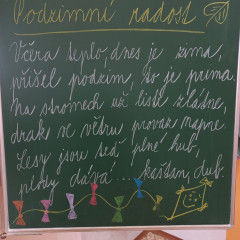 Podzimní radost
Včera teplo, dnes je zima,
přišel podzim, to je prima.
Na stromech už listí zlátne,
drak ve větru provaz napne.
Lesy jsou teď plné hub,
plody dává ... kaštan, dub.